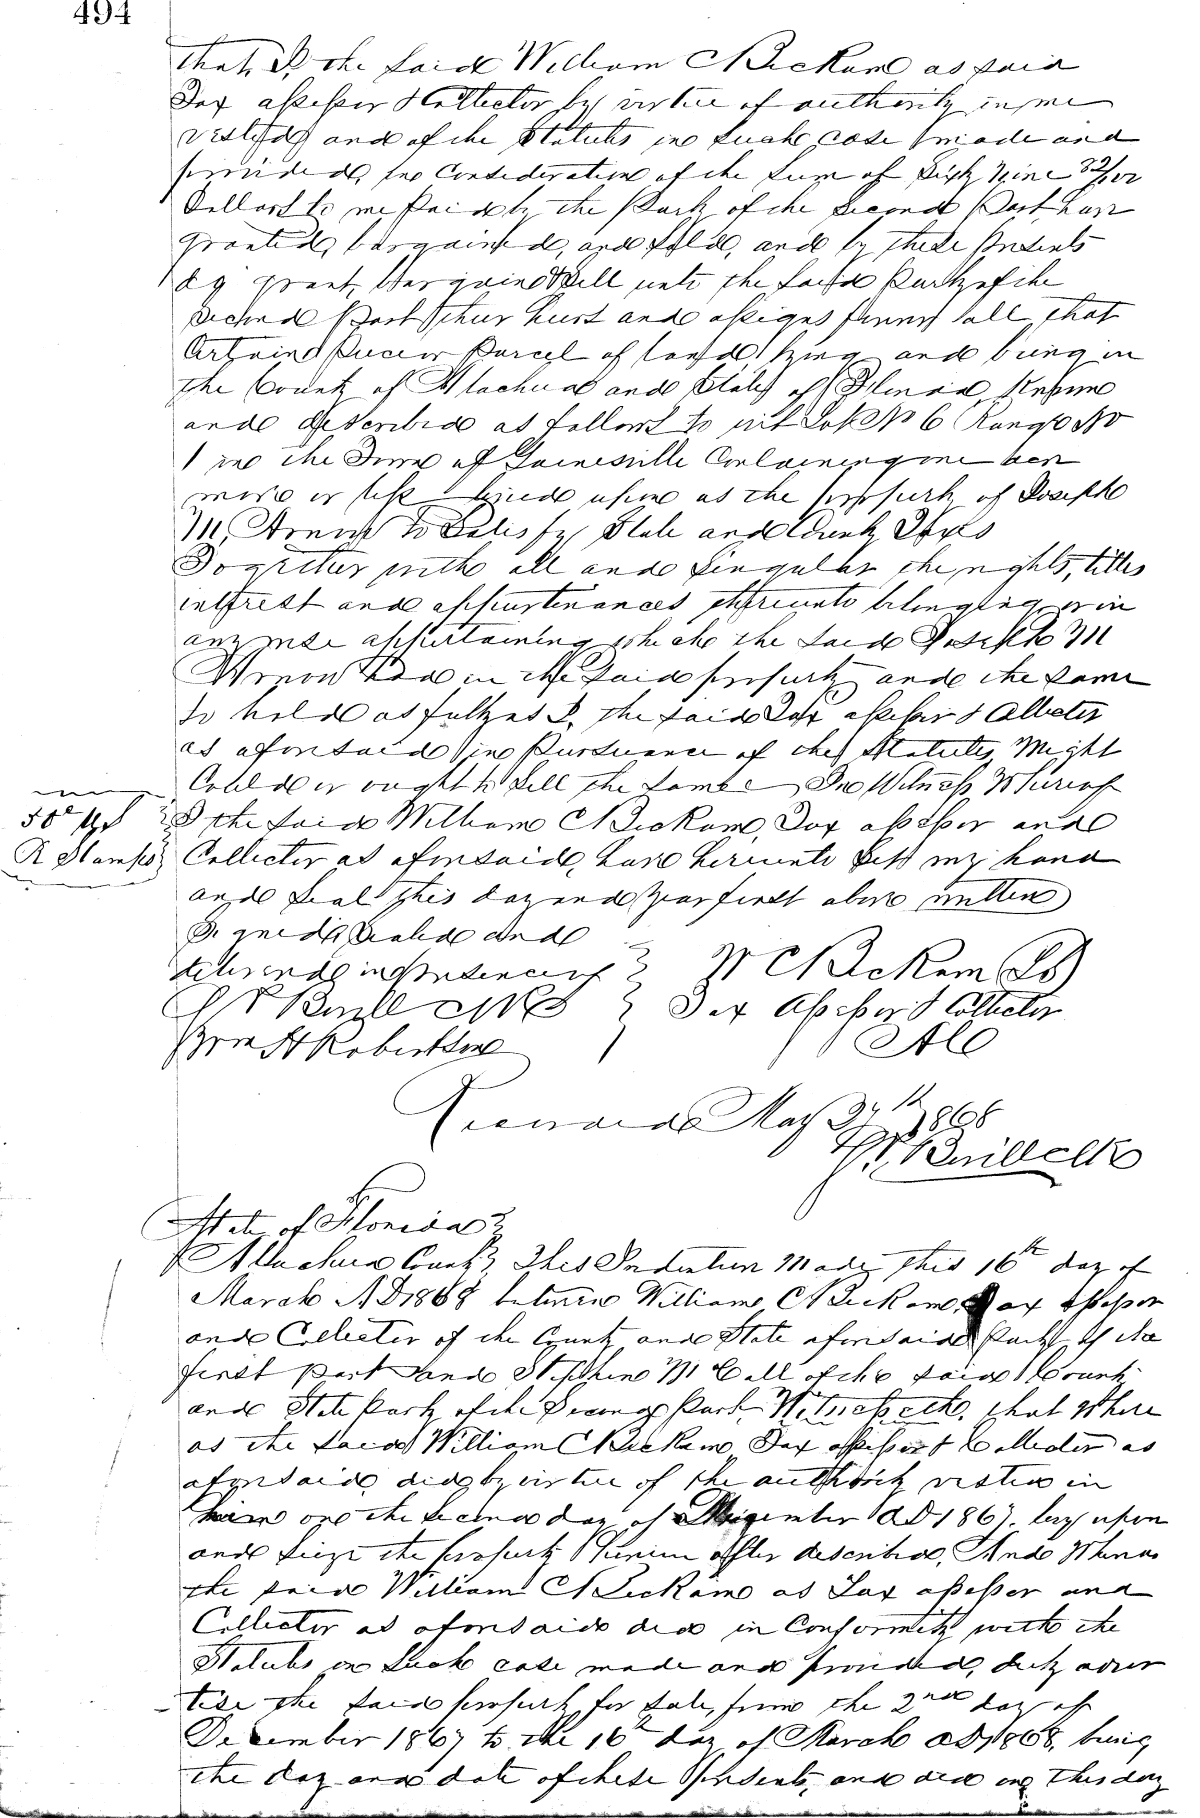 494
that I, the said William C Beckam as said
Tax assessor & Collector by virtue of authority in me
vested and of the Statutes in such case made and
provided, in Consideration of the Sum of Sixty Nine 32/100
Dollars to me Paid by the Party of the Second Part have
granted, bargained, and sold, and by these presents
do grant, bargain & Sell unto the said Party of the
Second Part their heirs and assigns forever all that
Certain Piece or Parcel of land lying and being in
the County of Alachua and State of Florida, Known
and described as follows to wit Lot No 6 Range No
1 in the Town of Gainesville Containing one acre
more or less levied upon as the property of Joseph
M, Arnow to Satisfy State and County Taxes
Together with all and Singular the rights, titles
interest and appurtenances thereunto belonging or in
any wise appertaining which the said Joseph M
Arnow had in the said property and the same
to hold as fully as I, the said Tax assessor & Collector
as aforesaid in Pursuance of the Statutes Might
Could or ought to sell the same In Witness Whereof
50c
R Stamps
I the said William C Beckam, Tax assessor and
Collector as aforesaid, have hereunto Set my hand
and Seal this day and year first above written
Signed, Sealed and
delivered in presence of
W C Beckam (LS)
Tax Assessor & Collector
A C
Wm H Robertson
Recorded May 27th 1868
Clk
State of Florida
Alachua County This Indenture Made this 16th day of
March AD 1868 between William C Beckam, Tax assessor
and Collector of the County and State aforesaid Party of the
first Part and Stephen M Call of the said County
and State Party of the Second Part, Witnesseth, that Where
as the said William C Beckam Tax assessor & Collector as
aforesaid, did by virtue of the authority vested in
him on the second day of December AD 1867. levy upon
and seize the property herein after described, And Whereas
the said William C Beckam as Tax assessor and
Collector as aforesaid did in Conformity with the
Statutes in such case made and provided, duly adver
tise the said property for sale, from the 2nd day of
December 1867 to the 16th day of March AD 1868, being
the day and date of these Presents, and did on this day